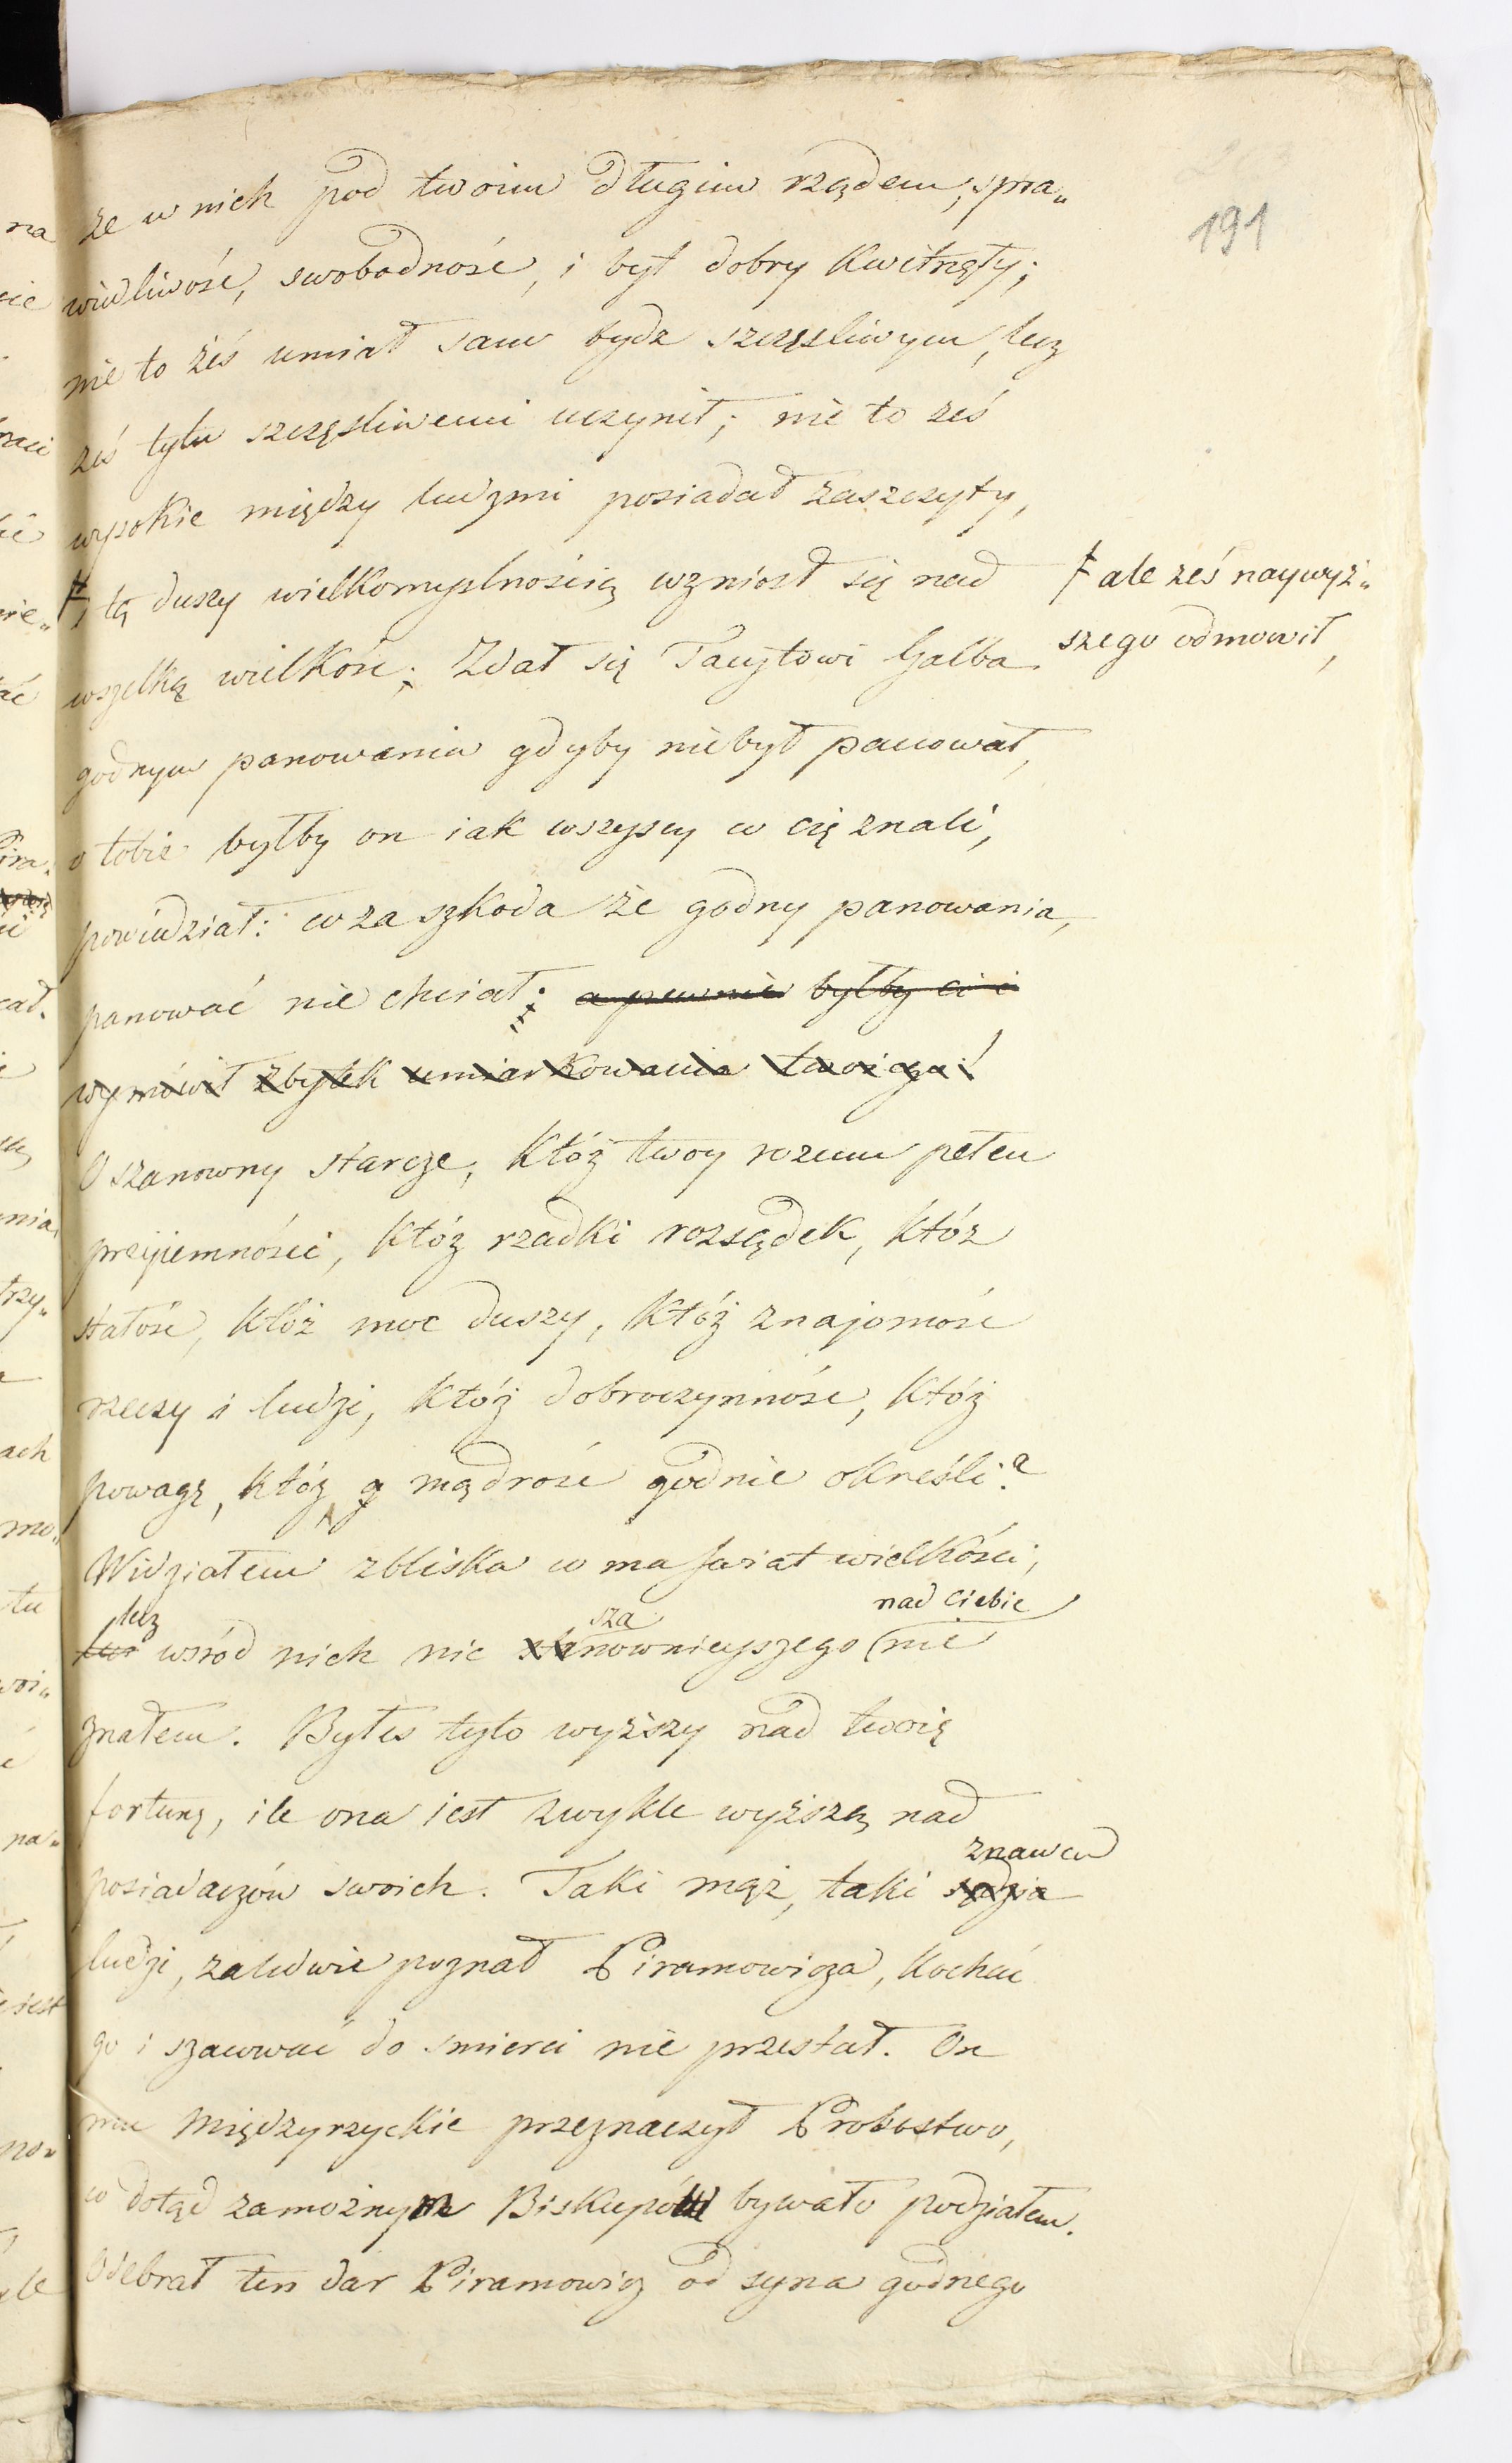 191
że w nich pod twoim długim rządem, spra„
wiedliwość, swobodność, i byt dobry kwitnęły;
nie to żeś umiał sam bydz szczęsliwym, lecz
żeś tylu szczęsliwemi uczynił; nie to żeś
wysokie między ludzmi posiadał zaszczyty,
ⱡ i tą duszy wielkomyslnością wzniosł się nad
ⱡ ale żeś naywyż„
szego odmowił,
wszelką wielkość. Zdał się Tacytowi Galba
godnym panowania gdyby niebył panował,
o tobie byłby on iak wszyscy co cię znali,
powiedział: co za szkoda że godny panowania,
panować nie chciał: a pewnie byłby ci i
wymówił zbytek umiarkowania twoiego!
O szanowny starcze, któż twoy rozum pełen
przyiemności, któż rzadki rozsądek, któż
stałość, któż moc duszy, któż znajomość
rzeczy i ludzi, któż dobroczynność, któż
powagę, któż mądrość godnie określi?
Widziałem zbliska co ma świat wielkości,
lecz sza nad ciebie
wsród nich nic nownieyszego nie
znałem. Byłes tyło wyższy nad twoię
fortunę, ile ona iest zwykle wyższą nad
znawca
posiadaczów swoich. Taki mąż, taki sędzia
ludzi, zaledwie poznał Piramowicza, kochać
go i szanować do smierci nie przestał. On
mu Międzyrzyckie przeznaczył Probostwo,
co dotąd zamożnym Biskupów bywało podziałem.
Odebrał ten dar Piramowicz od syna godnego